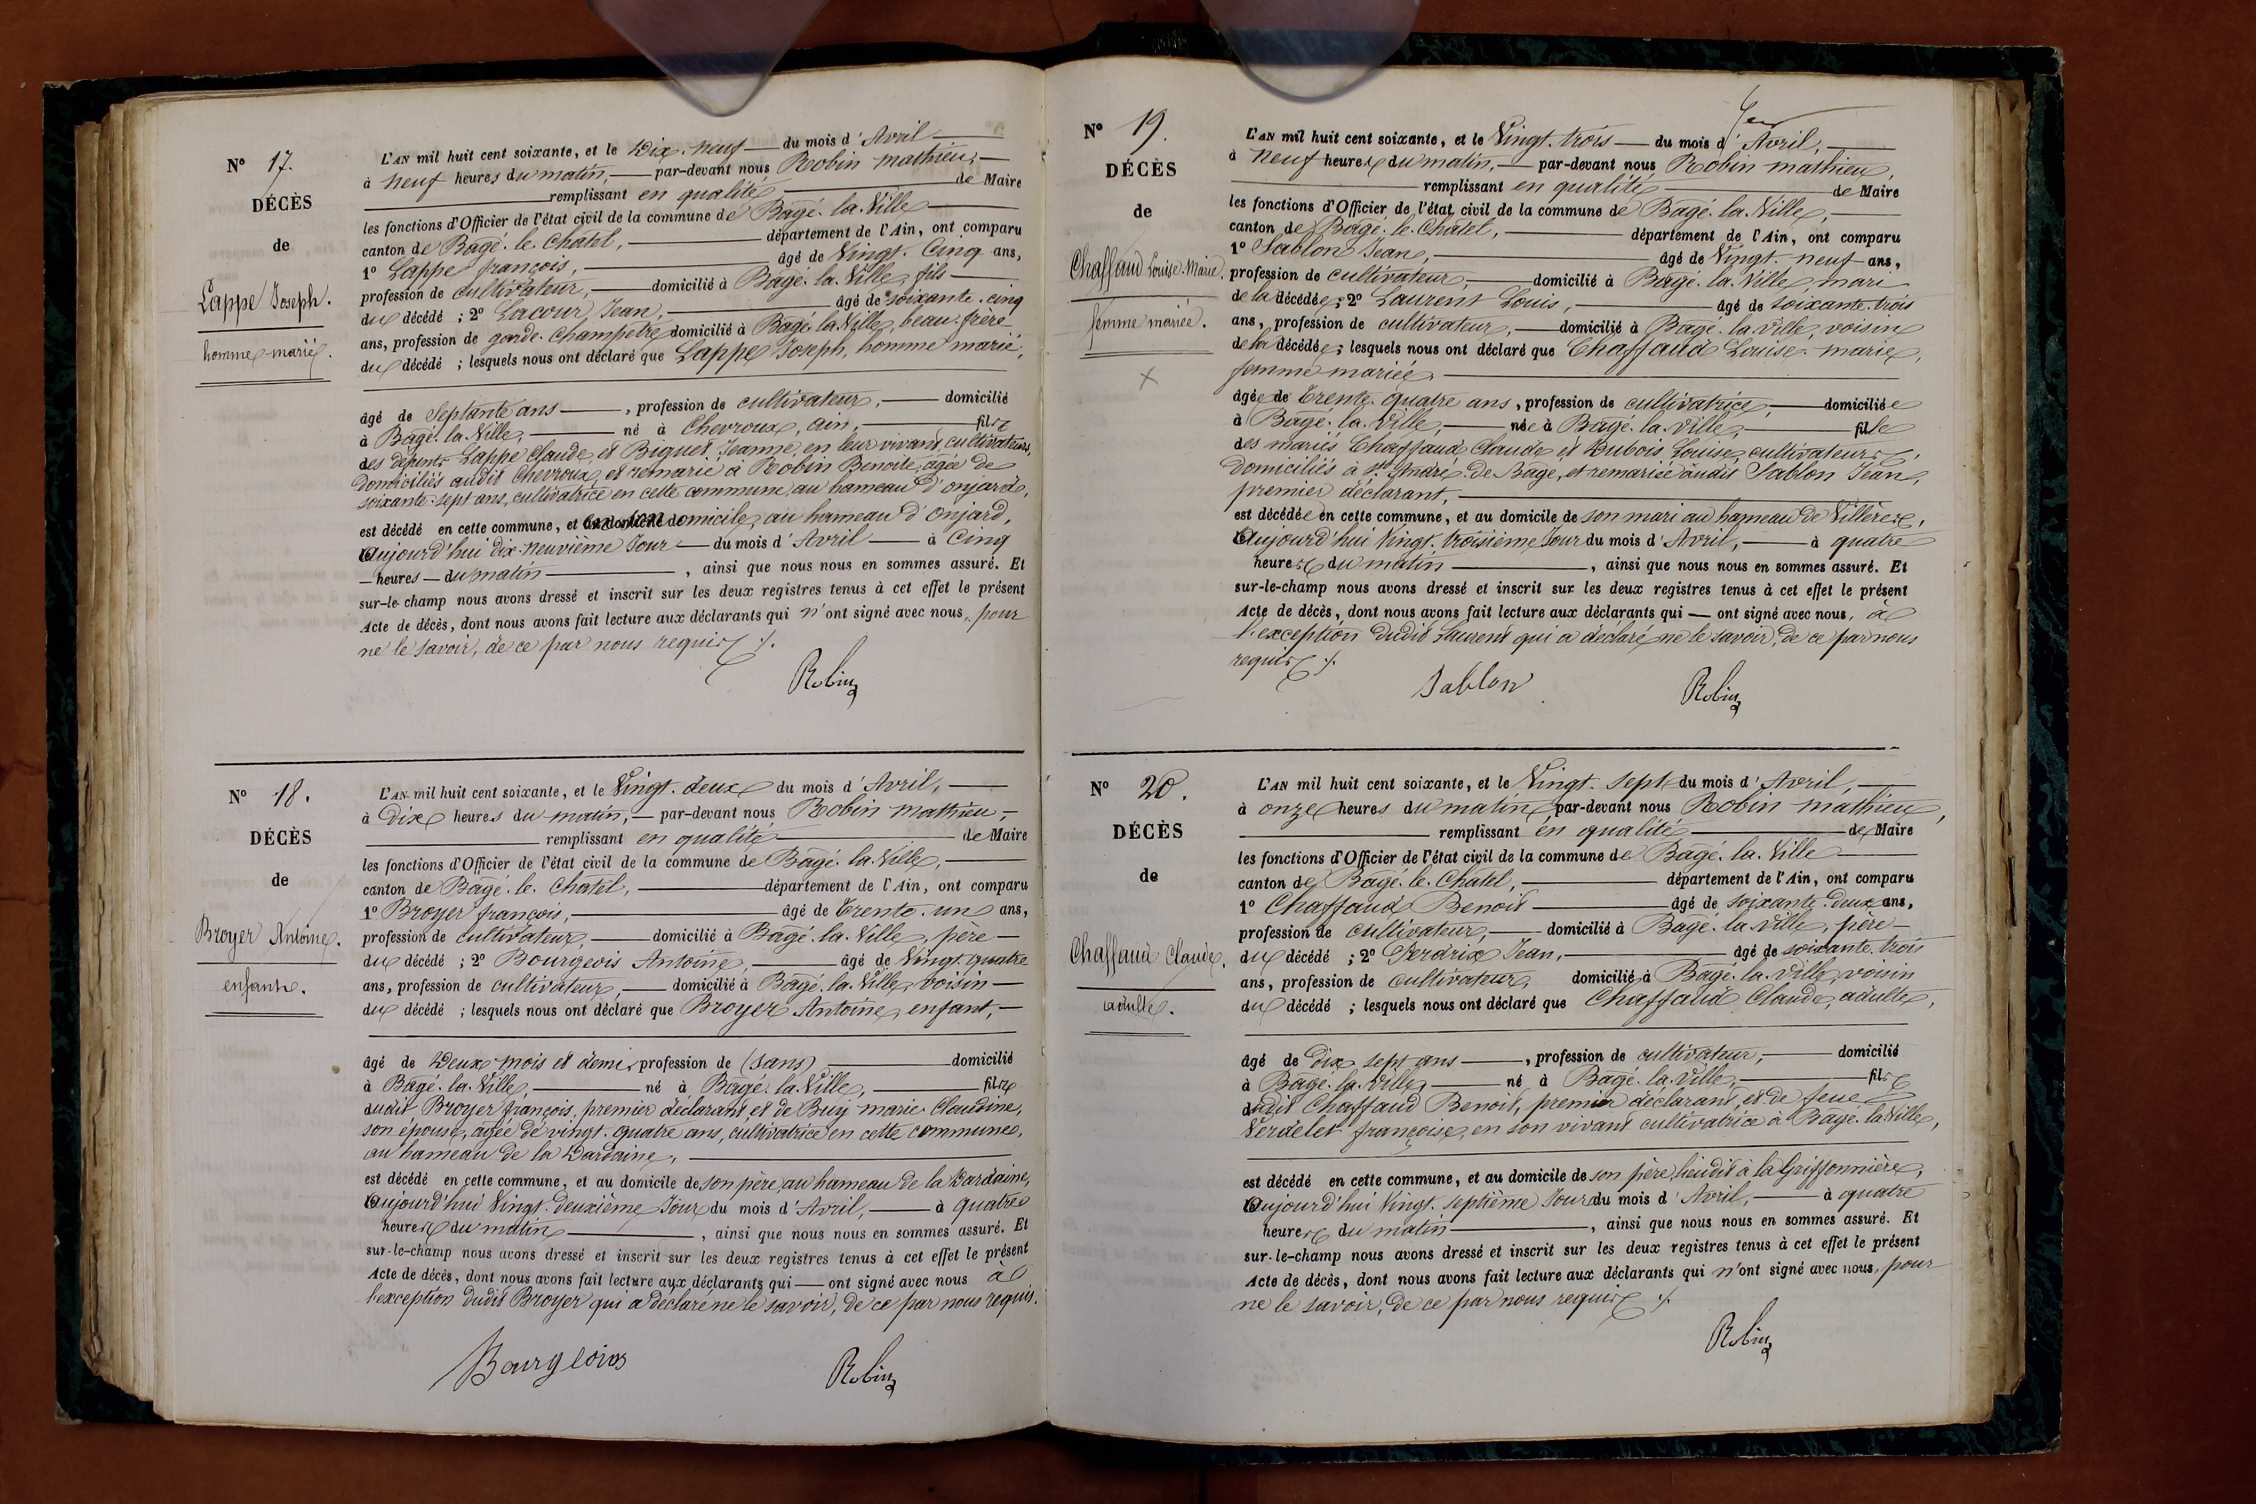 N° 17.
DÉCÈS
de
Lappe Joseph.
homme marié.
L'AN mil huit cent soixante, et le Dix-neuf du mois d'Avril
à neuf heures du matin, par-devant nous Robin Mathieu,
remplissant en qualité de Maire
les fonctions d'Officier de l'état civil de la commune de Bagé-la-Ville
canton de Bagé-le-Chatel, département de l'Ain, ont comparu
1° Lappe françois, âgé de Vingt-Cinq ans,
profession de cultivateur, domicilié à Bagé-la-Ville, fils
du décédé ; 2° Lacour Jean, âgé de soixante-cinq
ans, profession de garde-champetre domicilié à Bagé-la-Ville, beau-frère
du décédé ; lesquels nous ont déclaré que Lappe Joseph, homme marié,
âgé de Septante ans, profession de cultivateur, domicilié
à Bagé-la-Ville, né à Chevroux, ain, fils
des défunts Lappe Claude et Biguet Jeanne, en leur vivant cultivateurs,
domiciliés audit Chevroux, et remarié à Robin Benoite, agée de
soixante-sept ans, cultivatrice en cette commune, au hameau d'onjard,
est décédé en cette commune, et en son domicile, au hameau d'Onjard,
Aujourd'hui dix-neuvième Jour du mois d'Avril à Cinq
heures du matin, ainsi que nous nous en sommes assuré. Et
sur-le-champ nous avons dressé et inscrit sur les deux registres tenus à cet effet le présent
Acte de décès, dont nous avons fait lecture aux déclarants qui n'ont signé avec nous, pour
ne le savoir, de ce par nous requis ./.
Robin
N° 18.
DÉCÈS
de
Broyer Antoine.
enfant.
L'AN mil huit cent soixante, et le Vingt-deux du mois d'Avril,
à Dix heures du matin, par-devant nous Robin Mathieu,
remplissant en qualité de Maire
les fonctions d'Officier de l'état civil de la commune de Bagé-la-Ville,
canton de Bagé-le-Chatel, département de l'Ain, ont comparu
1° Broyer françois, âgé de Trente-un ans,
profession de cultivateur, domicilié à Bagé-la-Ville, père
du décédé ; 2° Bourgeois Antoine, âgé de Vingt-quatre
ans, profession de cultivateur, domicilié à Bagé-la-Ville, voisin
du décédé ; lesquels nous ont déclaré que Broyer Antoine, enfant,
âgé de Deux mois et demi, profession de (sans) domicilié
à Bagé-la-Ville, né à Bagé-la-Ville, fils
dudit Broyer françois, premier déclarant et de Buy marie-Claudine,
son épouse, agée de vingt-quatre ans, cultivatrice en cette commune,
au hameau de la Dardaine,
est décédé en cette commune, et au domicile de son père, au hameau de la Dardaine,
Aujourd'hui Vingt-deuxième Jour du mois d'Avril, à quatre
heures du matin, ainsi que nous nous en sommes assuré. Et
sur-le-champ nous avons dressé et inscrit sur les deux registres tenus à cet effet le présent
Acte de décès, dont nous avons fait lecture aux déclarants qui ont signé avec nous à
l'exception dudit Broyer qui a déclaré ne le savoir, de ce par nous requis.
Bourgeois Robin
N° 19.
DÉCÈS
de
Chaffaud Louise-Marie.
femme mariée.
L'AN mil huit cent soixante, et le Vingt-trois du mois d'Avril,
à neuf heures du matin, par-devant nous Robin mathieu,
remplissant en qualité de Maire
les fonctions d'Officier de l'état civil de la commune de Bagé-la-Ville,
canton de Bagé-le-Chatel, département de l'Ain, ont comparu
1° Sablon Jean, âgé de Vingt-neuf ans,
profession de cultivateur, domicilié à Bagé-la-Ville, mari
de la décédée ; 2° Laurent Louis, âgé de soixante-trois
ans, profession de cultivateur, domicilié à Bagé-la-Ville, voisin
de la décédée ; lesquels nous ont déclaré que Chaffaud Louise-marie,
femme mariée,
âgée de Trente-quatre ans, profession de cultivatrice, domiciliée
à Bagé-la-Ville, née à Bagé-la-Ville, fille
des mariés Chaffaud Claude et Dubois Louise, cultivateurs,
domiciliés à St André-de-Bagé, et remariée audit Sablon Jean,
premier déclarant,
est décédée en cette commune, et au domicile de son mari au hameau de Villères,
Aujourd'hui Vingt-troisième Jour du mois d'Avril, à quatre
heures du matin, ainsi que nous nous en sommes assuré. Et
sur-le-champ nous avons dressé et inscrit sur les deux registres tenus à cet effet le présent
Acte de décès, dont nous avons fait lecture aux déclarants qui ont signé avec nous, à
l'exception dudit Laurent qui a déclaré ne le savoir, de ce par nous
requis ./.
Sablon Robin
N° 20.
DÉCÈS
de
Chaffaud Claude.
adulte.
L'AN mil huit cent soixante, et le Vingt-sept du mois d'Avril,
à onze heures du matin, par-devant nous Robin mathieu,
remplissant en qualité de Maire
les fonctions d'Officier de l'état civil de la commune de Bagé-la-Ville
canton de Bagé-le-Chatel, département de l'Ain, ont comparu
1° Chaffaud Benoit âgé de soixante-deux ans,
profession de cultivateur, domicilié à Bagé-la-Ville, père
du décédé ; 2° Perdrix Jean, âgé de soixante-trois
ans, profession de cultivateur, domicilié à Bagé-la-Ville, voisin
du décédé ; lesquels nous ont déclaré que Chaffaud Claude, adulte,
âgé de Dix-sept ans, profession de cultivateur, domicilié
à Bagé-la-Ville, né à Bagé-la-Ville, fils
dudit Chaffaud Benoit, premier déclarant, et de feue
Verdelet françoise, en son vivant cultivatrice à Bagé-la-Ville,
est décédé en cette commune, et au domicile de son père, lieudit à la Griffonnière,
Aujourd'hui Vingt-septième Jour du mois d'Avril, à quatre
heures du matin, ainsi que nous nous en sommes assuré. Et
sur-le-champ nous avons dressé et inscrit sur les deux registres tenus à cet effet le présent
Acte de décès, dont nous avons fait lecture aux déclarants qui n'ont signé avec nous, pour
ne le savoir, de ce par nous requis ./.
Robin